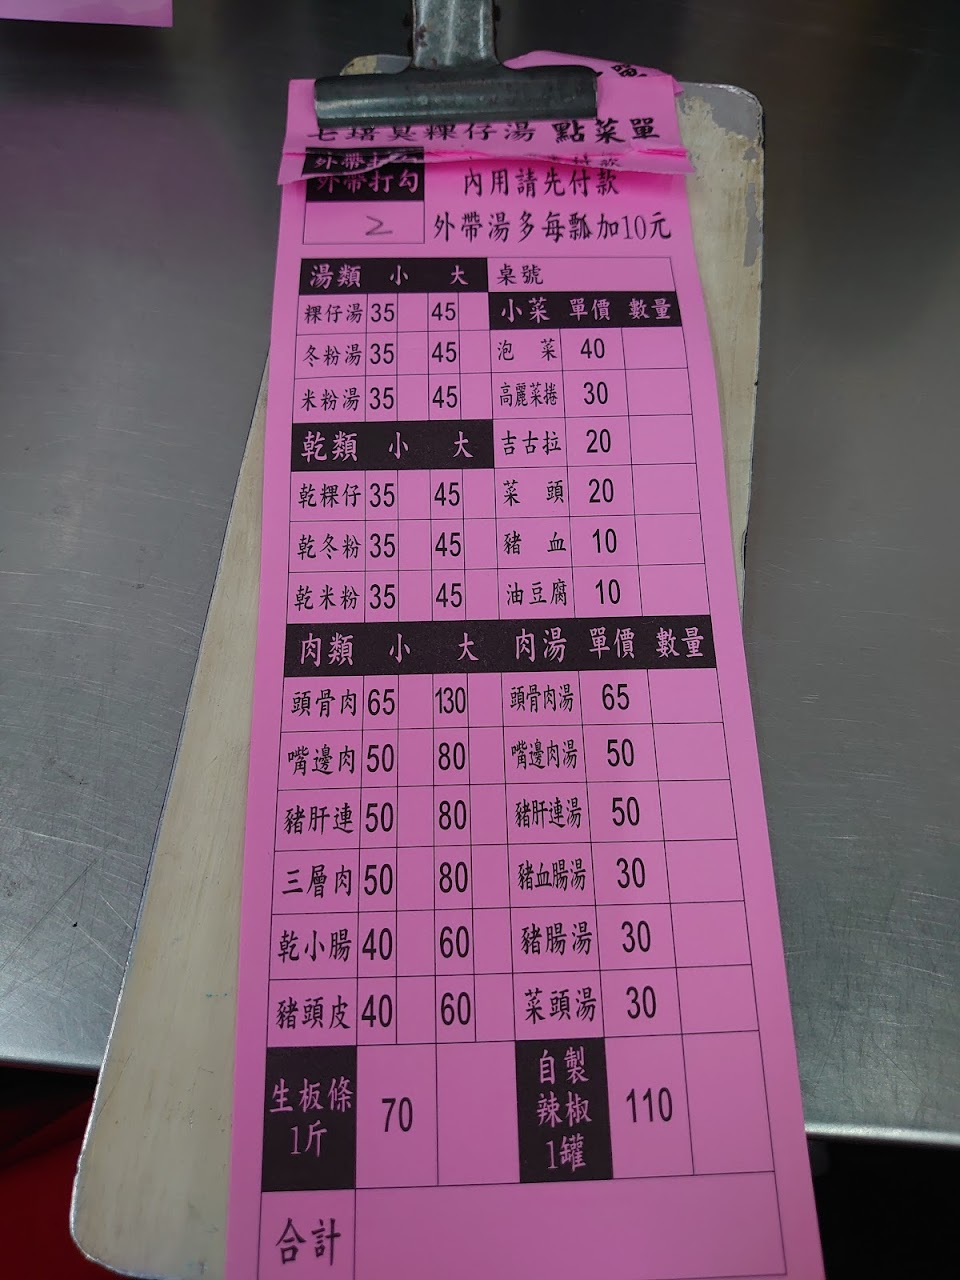 粿仔湯 點菜單
外帶打勾 內用請先付款
2 外帶湯多每瓢加10元
湯類 小 大 桌號
粿仔湯 35 45 小菜 單價 數量
冬粉湯 35 45 泡菜 40
米粉湯 35 45 高麗菜捲 30
乾類 小 大 吉古拉 20
乾粿仔 35 45 菜頭 20
乾冬粉 35 45 豬血 10
乾米粉 35 45 油豆腐 10
肉類 小 大 肉湯 單價 數量
頭骨肉 65 130 頭骨肉湯 65
嘴邊肉 50 80 嘴邊肉湯 50
豬肝連 50 80 豬肝連湯 50
三層肉 50 80 豬血腸湯 30
乾小腸 40 60 豬腸湯 30
豬頭皮 40 60 菜頭湯 30
生板條 1斤 70 自製辣椒 1罐 110
合計